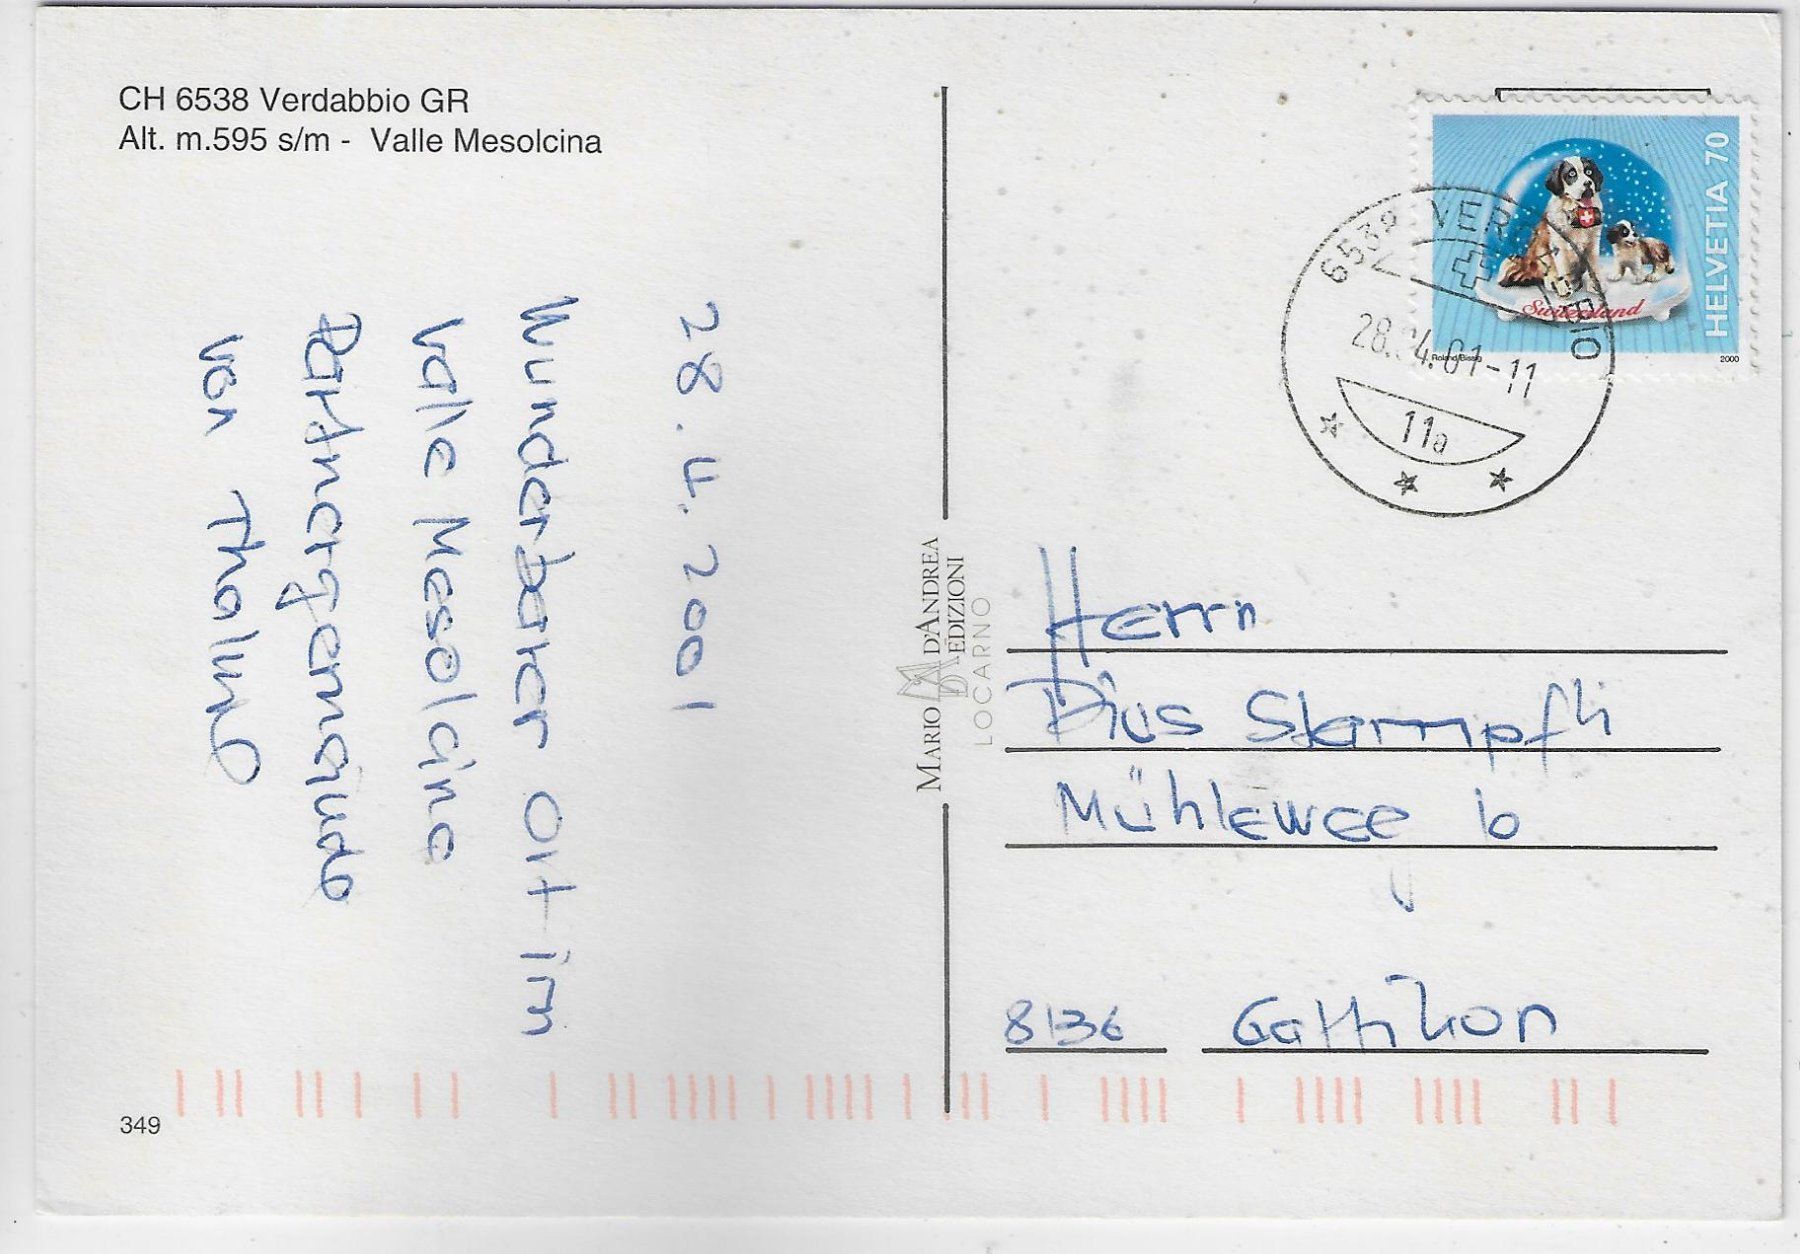 CH 6538 Verdabbio GR
Alt. m.595 s/m - Valle Mesolcina
28.4.2001
Wunderbarer Ort im
Valle Mesolcina
Partnergemeinde
von Thalwil
349
MARIO D'ANDREA
EDIZIONI
LOCARNO
HELVETIA 70
Switzerland
Roland Bissig
2000
6538 VERDABBIO
28.04.01-11
11a
Herrn
Pius Stampfli
8136 Gattikon